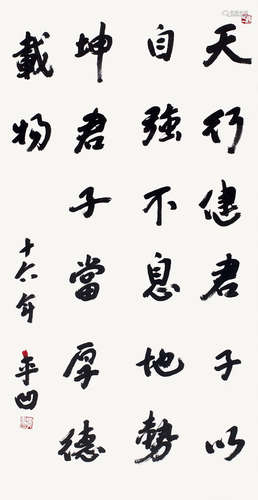 天行健君子以
自强不息地勢
坤君子當厚德
載物
十六年
平凹